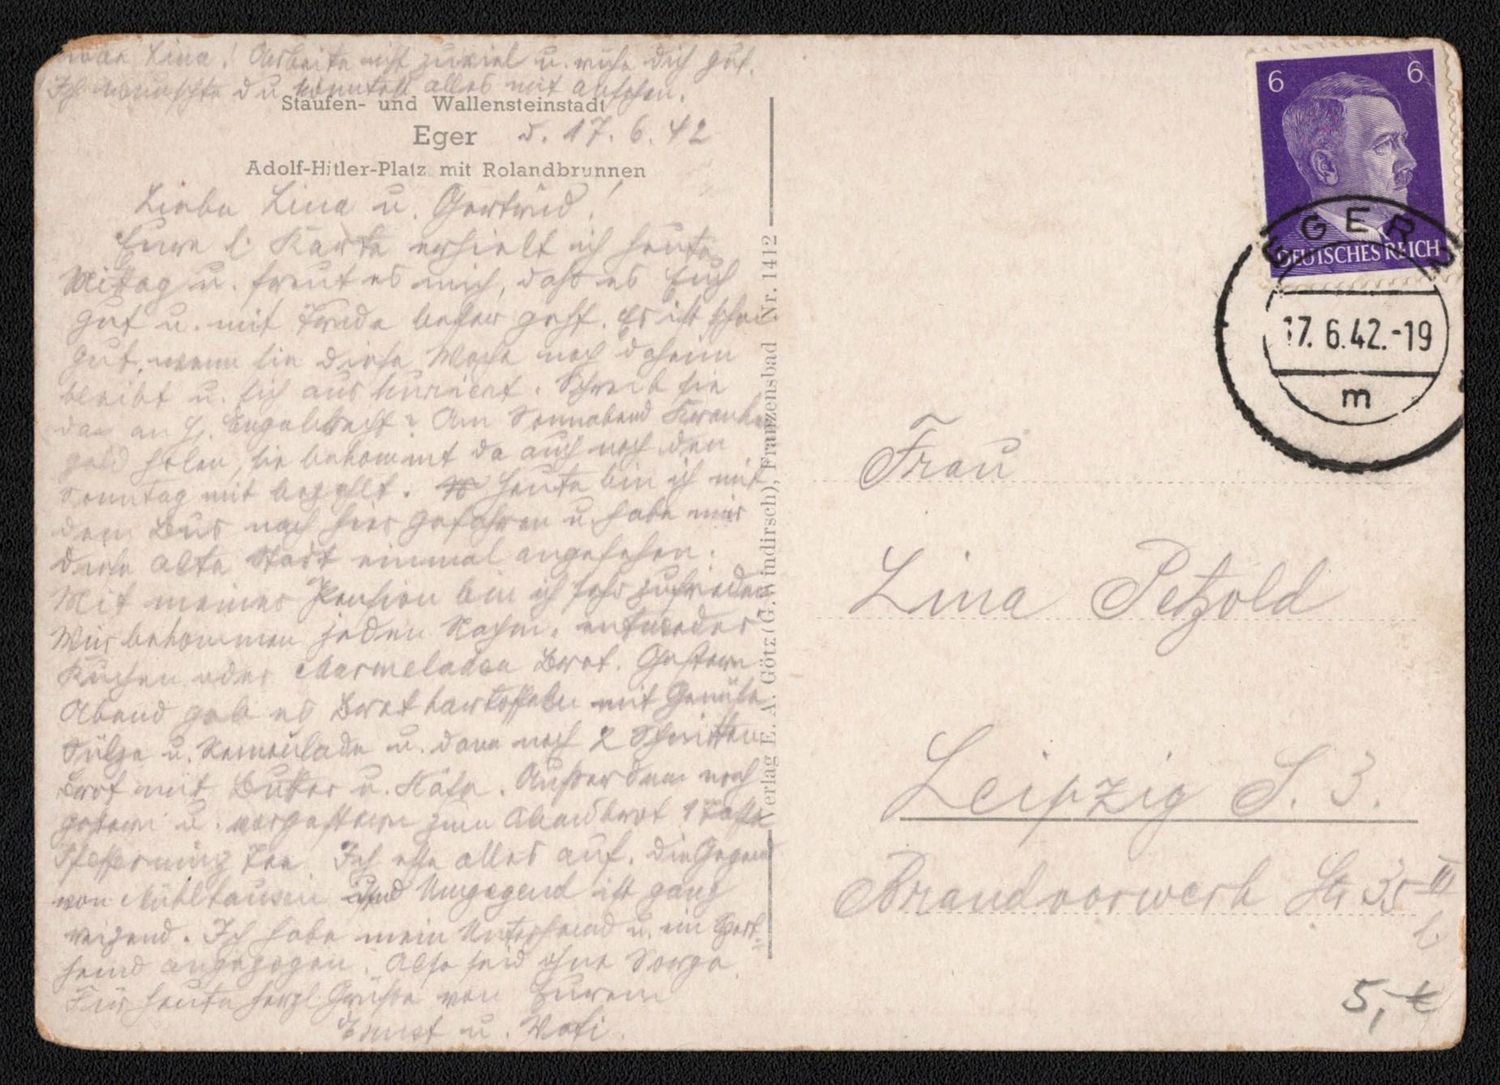 Liebe Lina! Arbeite nicht zuviel u. ruhe dich gut.
Ich wünschte du könntest alles mit ansehen.
Staufen- und Wallensteinstadt
Eger d. 17. 6. 42
Adolf-Hitler-Platz mit Rolandbrunnen
Liebe Lina u. Gertrud!
Eure l. Karte erhielt ich heute
Mittag u. freut es mich, daß es Euch
gut u. mit Frida besser geht. Es ist schon
gut, wenn sie diese Woche noch daheim
bleibt u. sich auskuriert. Schreib sie
das an H. Engelbrecht? Am Sonnabend Kranken
geld holen, sie bekommt da auch noch den
Sonntag mit bezahlt. Heute bin ich mit
dem Bus nach hier gefahren u. habe mir
diese alte Stadt einmal angesehen.
Mit meiner Pension bin ich sehr zufrieden
Wir bekommen jeden Nachm. entweder
Kuchen oder Marmeladen Brot. Gestern
Abend gab es Bratkartoffeln mit Gemüse
Sülze u. Remoulade u. dann noch 2 Schnitten
Brot mit Butter u. Käse. Außerdem noch
gestern u. vorgestern zum Abendbrot 1 Tasse
Pfefferminz Tee. Ich esse alles auf. Die Gegend
von Mühlhausen und Umgegend ist ganz
reizend. Ich habe mein Unterhemd u. ein
hemd angezogen. Also seid ohne Sorge.
Für heute herzl. Grüße von Eurem
Ernst u. Vati.
Verlag E. A. Götz (G. Windirsch), Franzensbad Nr. 1412
6 6
DEUTSCHES REICH
EGER 2
17. 6. 42.-19
m
Frau
Lina Petzold
Leipzig S. 3.
Brandvorwerk Str. 35 III
l.
5,- €